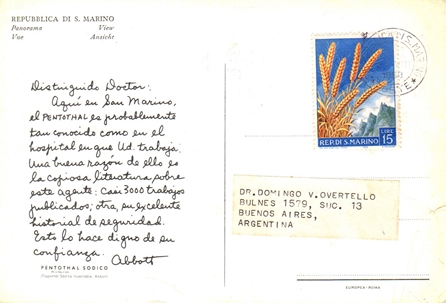 REPUBBLICA DI S. MARINO
Panorama View
Vue Ansicht
Distinguido Doctor:
Aquí en San Marino,
el PENTOTHAL es probablemente
tan conocido como en el
hospital en que Ud. trabaja.
Una buena razón de ello es
la copiosa literatura sobre
este agente: Casi 3000 trabajos
publicados; otra, su excelente
historial de seguridad.
Esto lo hace digno de su
confianza.
Abbott
PENTOTHAL SODICO
REP. DI S. MARINO
LIRE
15
DR. DOMINGO V. OVERTELLO
BULNES 1579, SUC. 13
BUENOS AIRES,
ARGENTINA
EUROPEA - ROMA